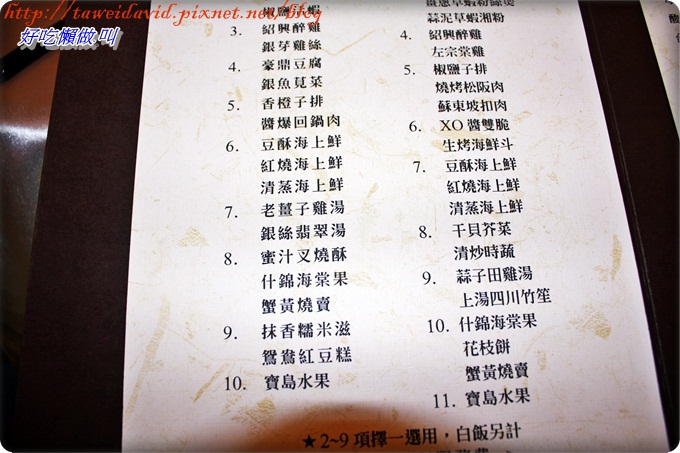 http://taweidavid.pixnet.net/blog
好吃懶做叫
椒鹽活蝦
3. 紹興醉雞
銀芽雞絲
4. 豪鼎豆腐
銀魚莧菜
5. 香橙子排
醬爆回鍋肉
6. 豆酥海上鮮
紅燒海上鮮
清蒸海上鮮
7. 老薑子雞湯
銀絲翡翠湯
8. 蜜汁叉燒酥
什錦海棠果
蟹黃燒賣
9. 抹香糯米滋
鴛鴦紅豆糕
10. 寶島水果
蒜泥草蝦湘粉
4. 紹興醉雞
左宗棠雞
5. 椒鹽子排
燒烤松阪肉
蘇東坡扣肉
6. XO醬雙脆
生烤海鮮斗
7. 豆酥海上鮮
紅燒海上鮮
清蒸海上鮮
8. 干貝芥菜
清炒時蔬
9. 蒜子田雞湯
上湯四川竹笙
10. 什錦海棠果
花枝餅
蟹黃燒賣
11. 寶島水果
★2~9項擇一選用，白飯另計